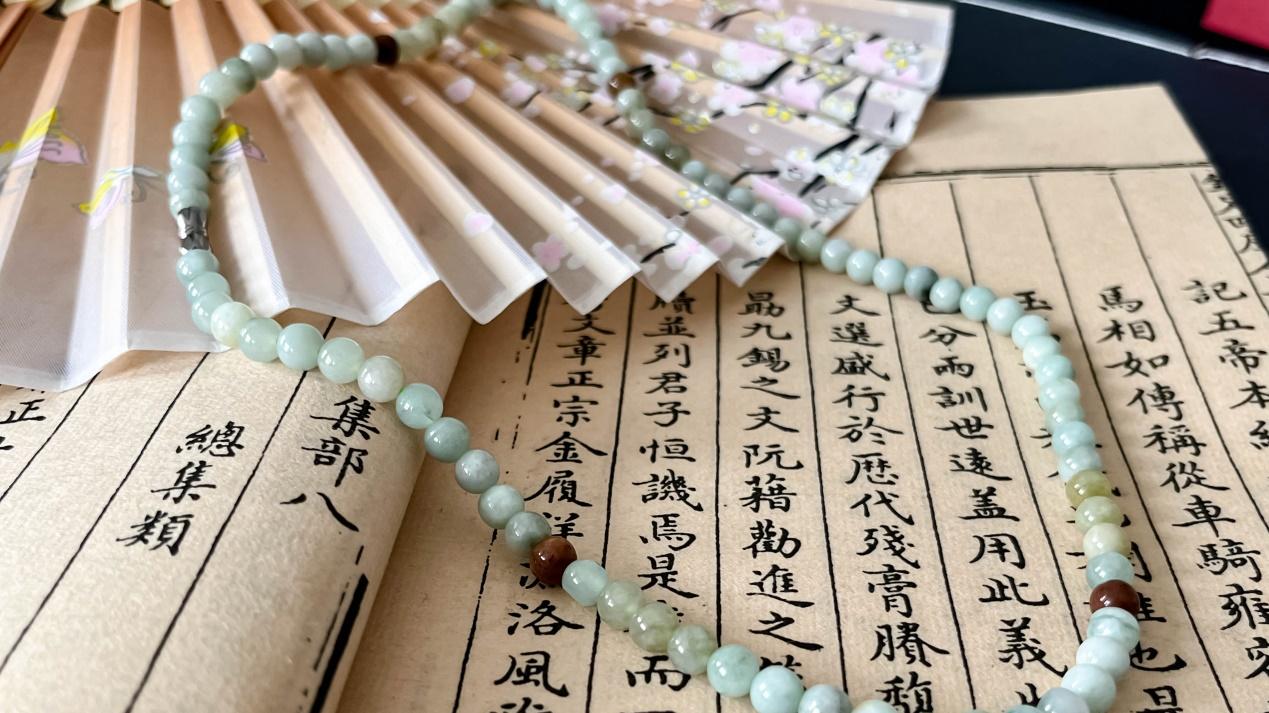 記五帝本
馬相如傳稱從車騎雍容
玉
分兩訓世遠蓋用此義
文選盛行於歷代殘膏賸馥
勗九錫之文阮籍勸進之
牘並列君子恒譏焉是
而
文章正宗金履祥
濂洛風
集部八
總集類
正